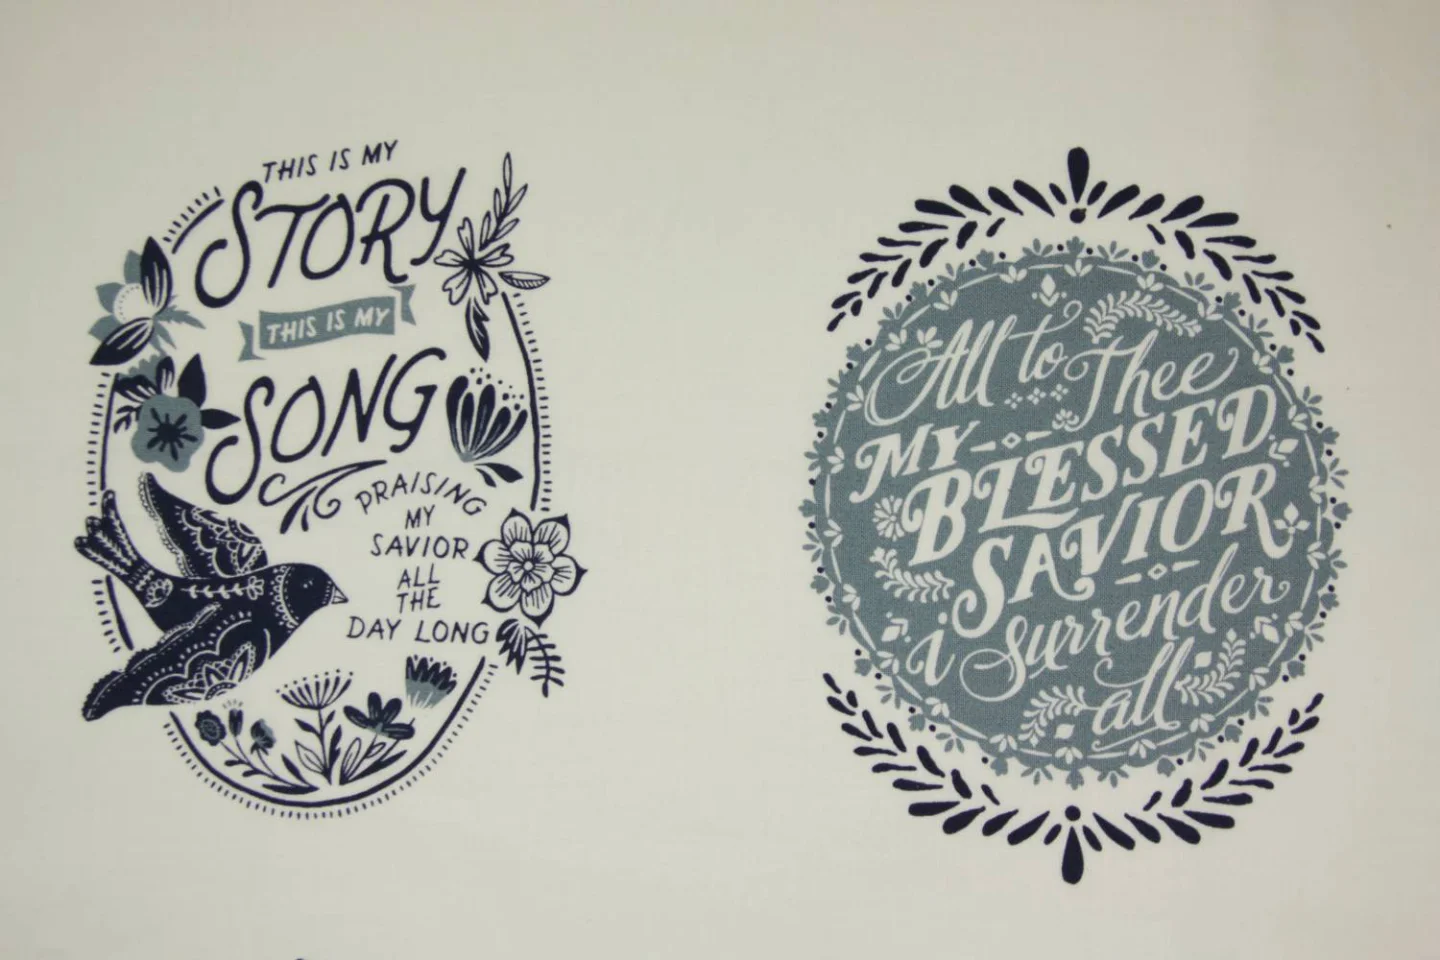 THIS IS MY
STORY
THIS IS MY
SONG
PRAISING
MY
SAVIOR
ALL
THE
DAY LONG
All to Thee
MY BLESSED
SAVIOR
i surrender
all